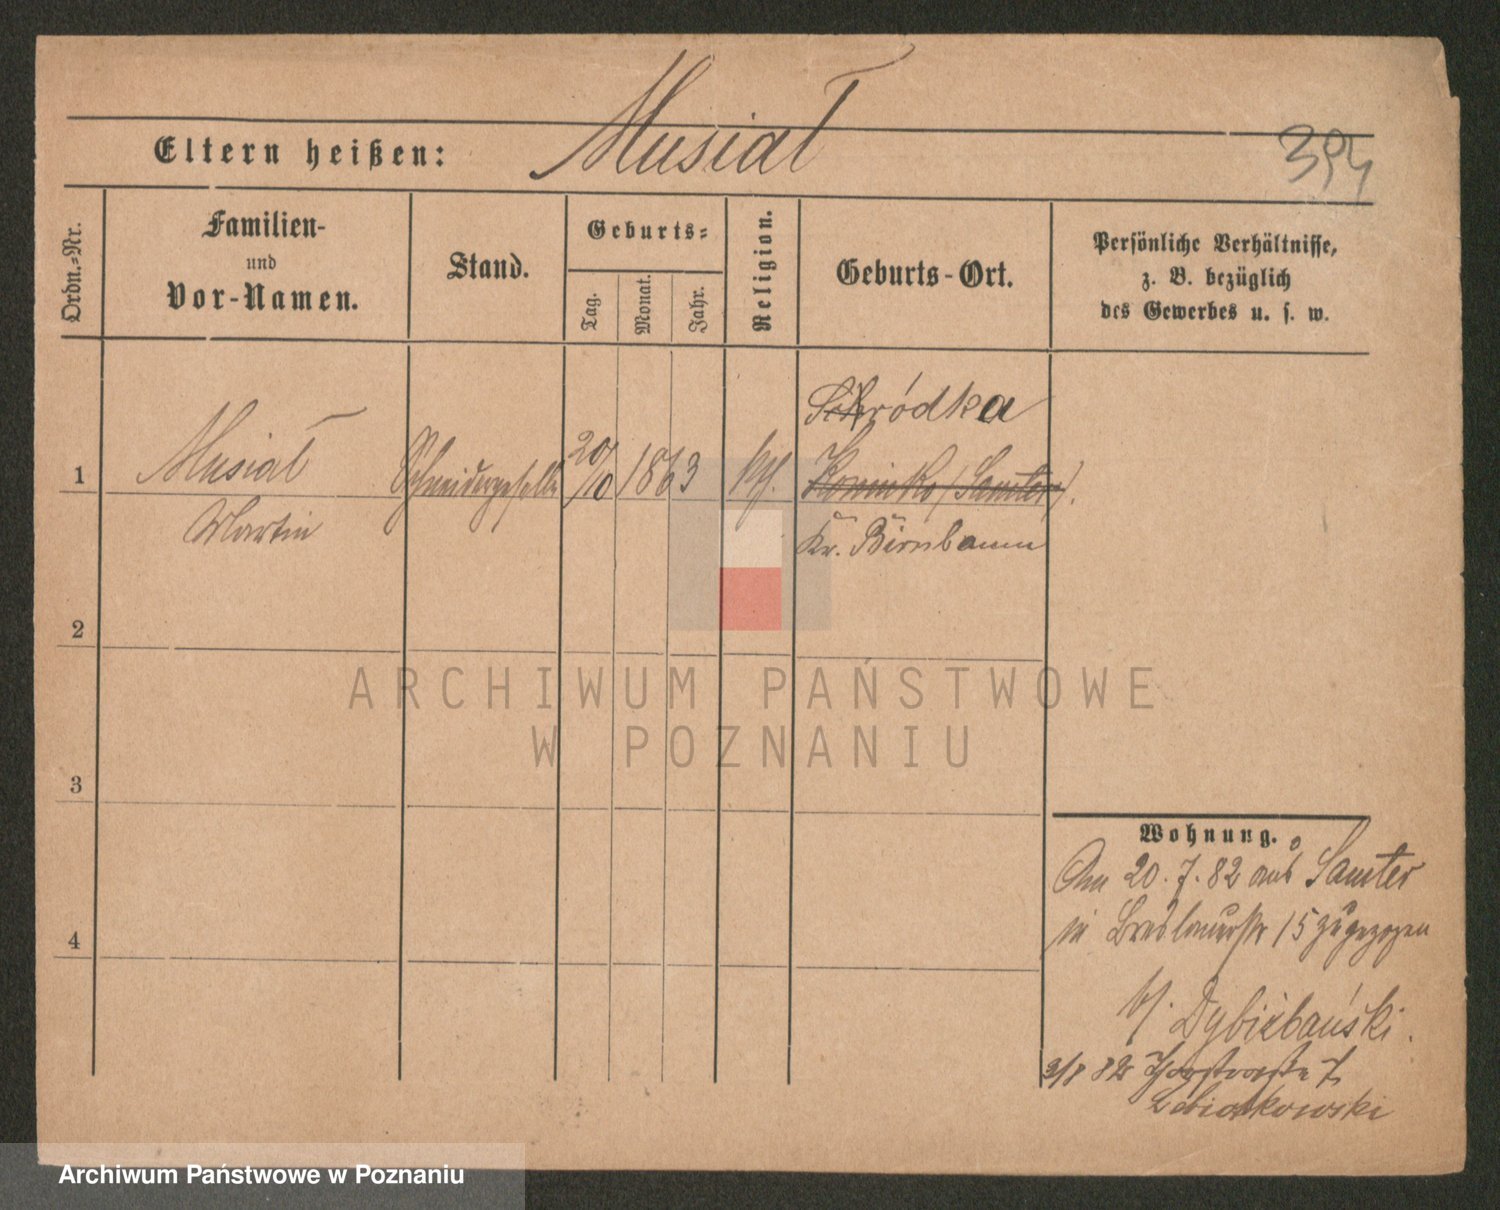 Musiał
394
Eltern heißen:
Ordn.-Nr.
Familien-
und
Vor-Namen.
Stand.
Geburts-
Tag.
Monat.
Jahr.
Religion.
Geburts-Ort.
Persönliche Verhältnisse,
z. B. bezüglich
des Gewerbes u. s. w.
1
Musiał
Martin
Schneidergeselle
20/10 1863
kth.
Schródka
Koninko (Samter).
Kr. Birnbaum
2
3
4
Wohnung.
Am 20.7.82 aus Samter
in Breslauerstr 15 zugezogen
bei Dybizbański.
3/8 82
ARCHIWUM PAŃSTWOWE
W POZNANIU
Archiwum Państwowe w Poznaniu